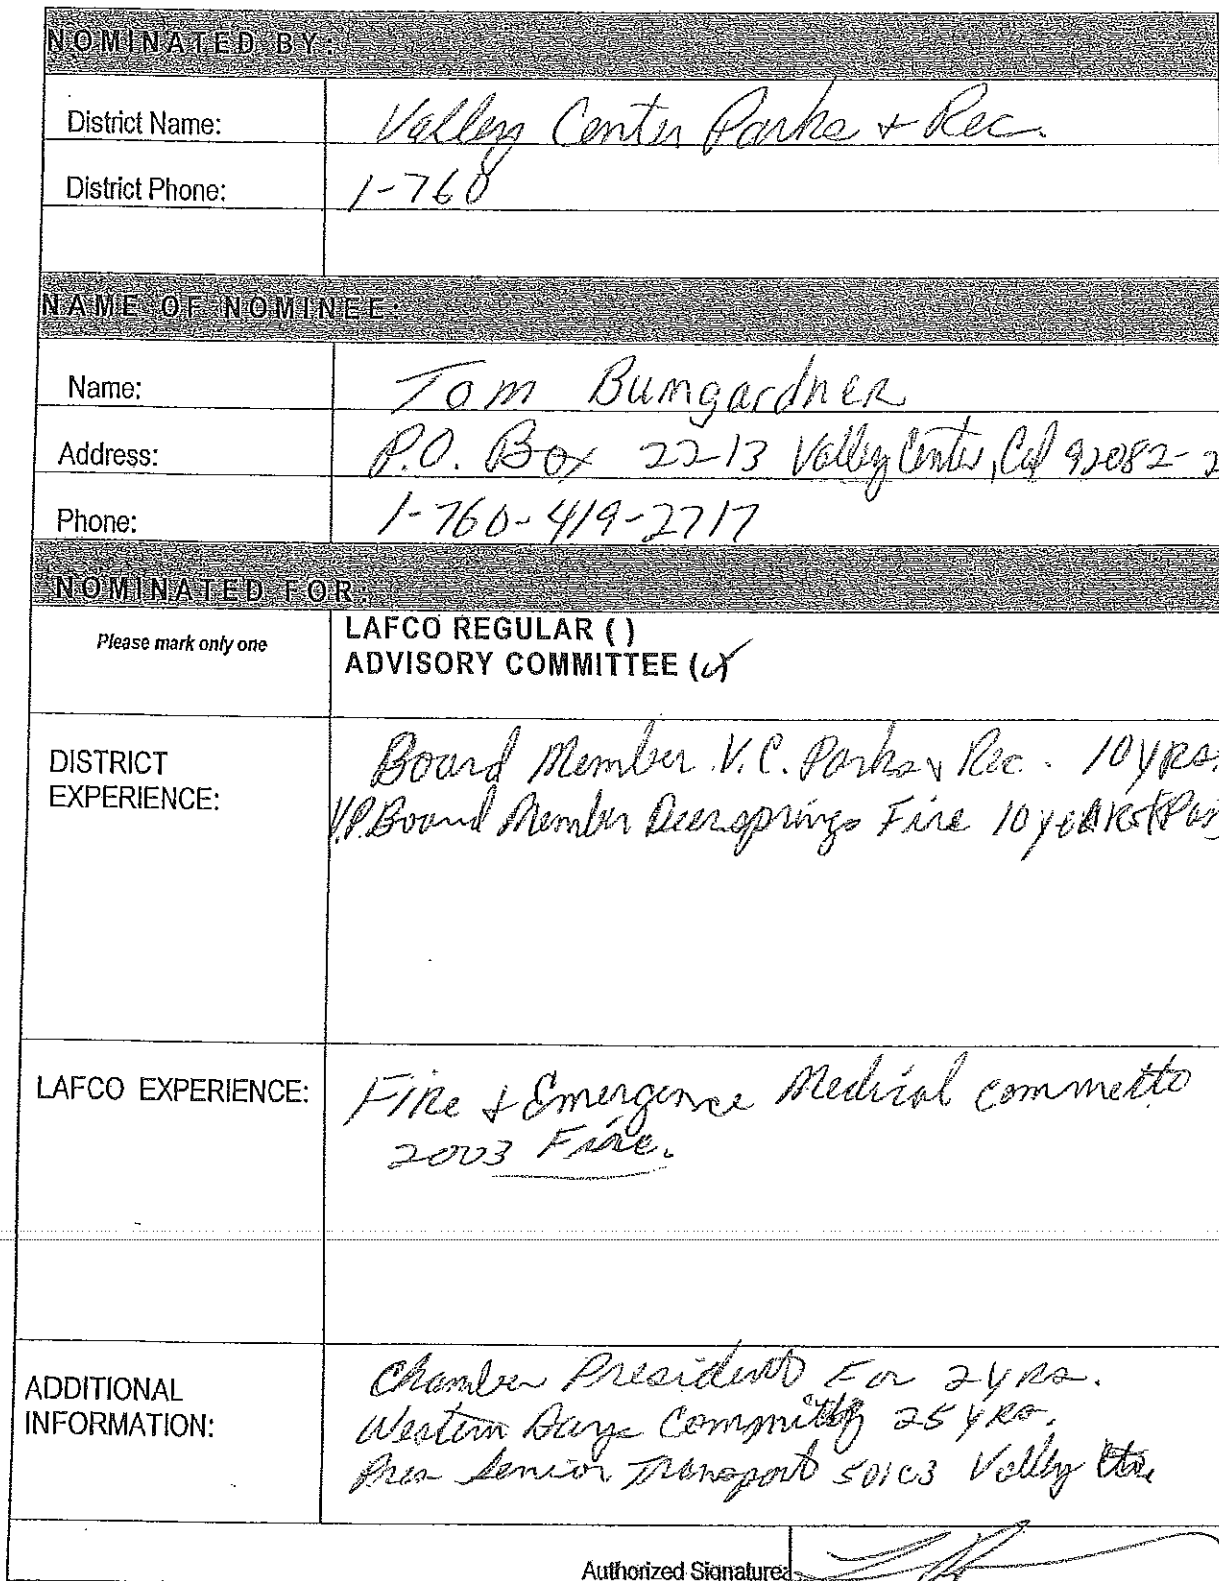 NOMINATED BY:
District Name: Valley Center Parks + Rec.
District Phone: 1-760
NAME OF NOMINEE:
Name: Tom Bumgardner
Address: P.O. Box 22-13 Valley Center, Cal 92082-2
Phone: 1-760-419-2717
NOMINATED FOR:
Please mark only one
LAFCO REGULAR ( )
ADVISORY COMMITTEE (✓)
DISTRICT EXPERIENCE:
Board Member V.C. Parks & Rec. 10 yrs.
V.P. Board Member Deersprings Fire 10 years (Pas
LAFCO EXPERIENCE:
Fire & Emergence Medical committe
2003 Fire.
ADDITIONAL INFORMATION:
Chamber President For 2 yrs.
Western Days Committy 25 yrs.
Pres Senior Transport 501C3 Valley Ctr.
Authorized Signature: